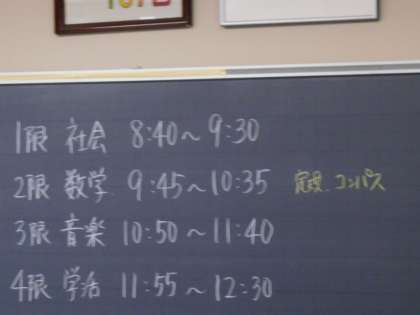 1限 社会 8:40~9:30
2限 数学 9:45~10:35 定規 コンパス
3限 音楽 10:50~11:40
4限 学活 11:55~12:30